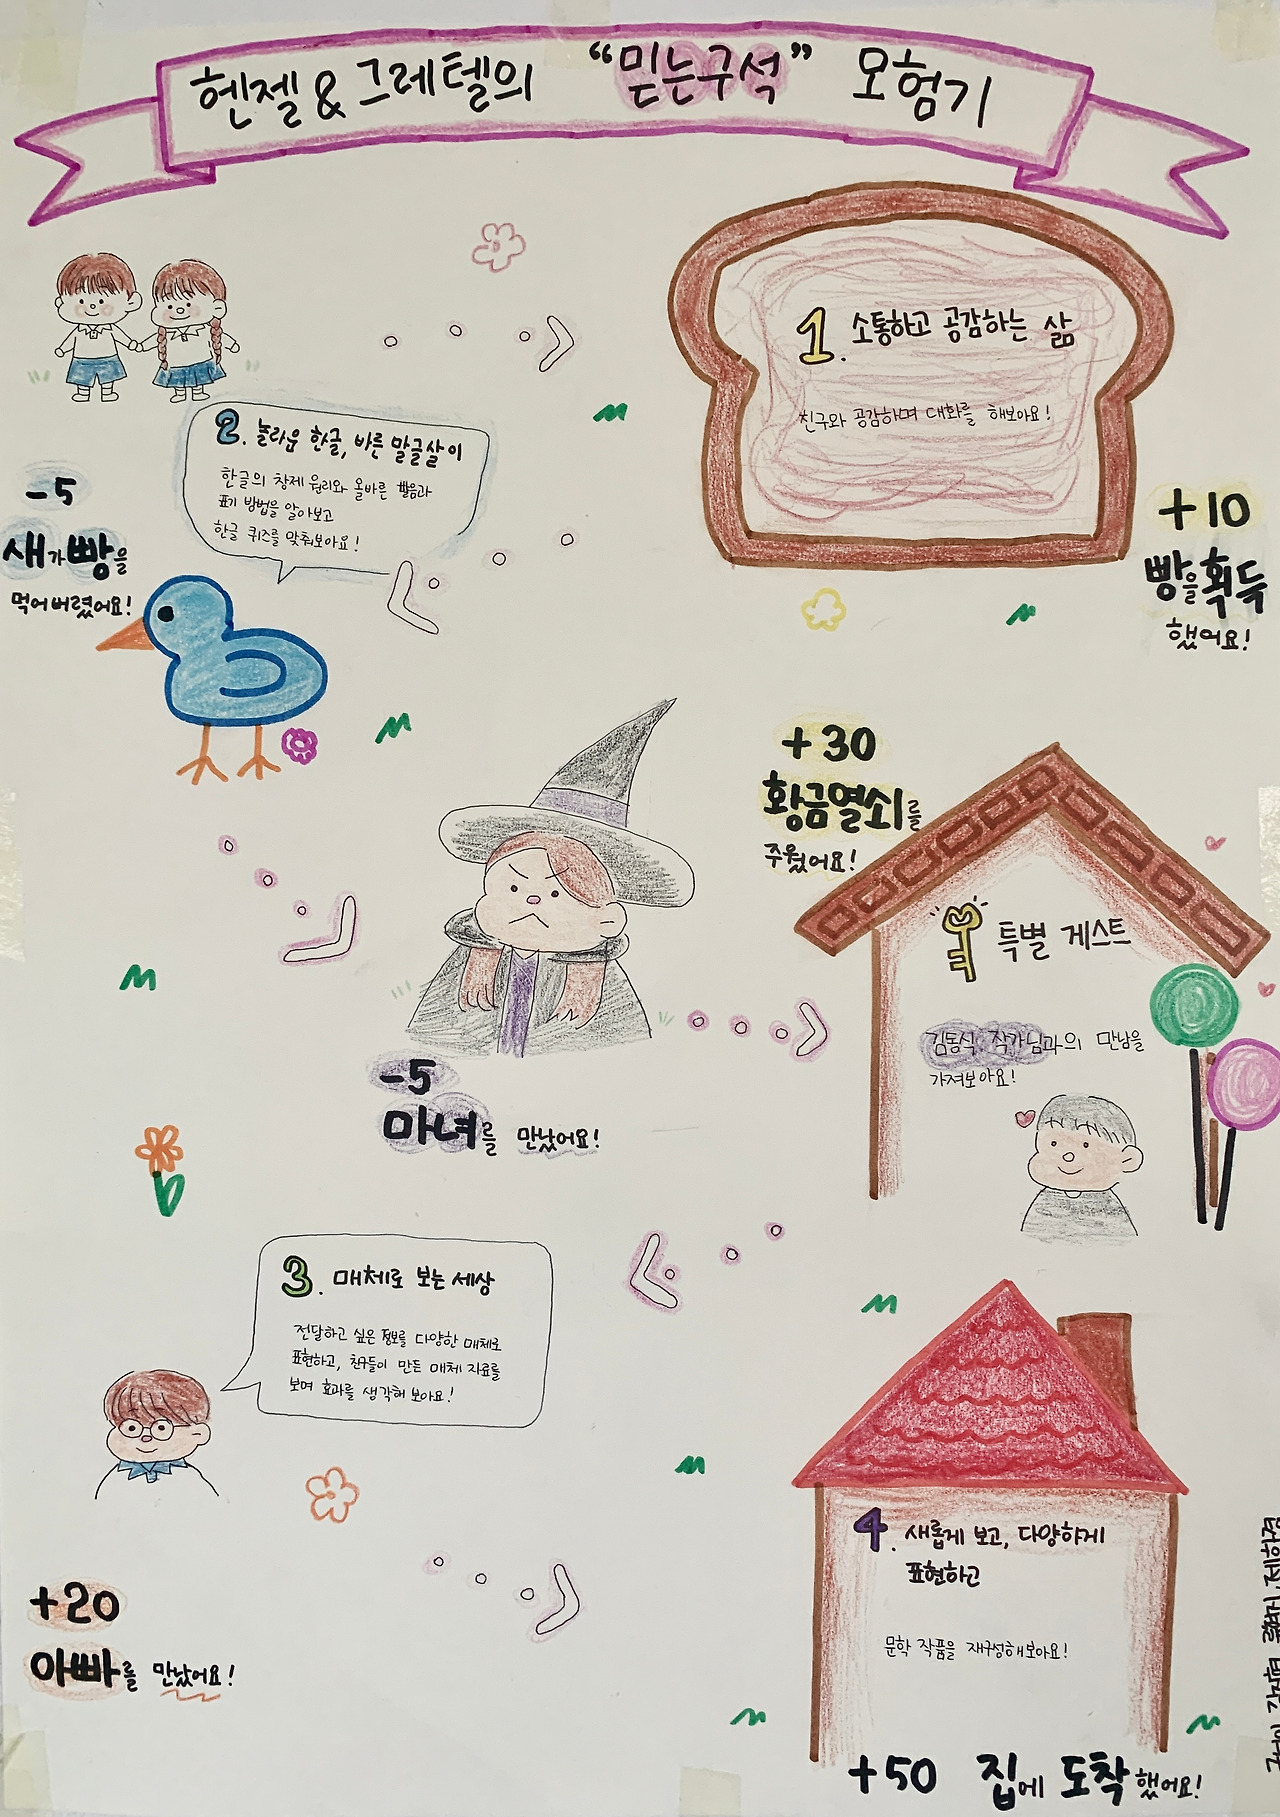 헨젤&그레텔의 “믿는구석” 모험기
1. 소통하고 공감하는 삶
친구와 공감하며 대화를 해보아요!
+10
빵을획득
했어요!
2. 놀라운 한글, 바른 말글살이
한글의 창제 원리와 올바른 발음과
표기 방법을 알아보고
한글 퀴즈를 맞춰보아요!
-5
새가빵을
먹어버렸어요!
-5
마녀를 만났어요!
+30
황금열쇠를
주웠어요!
특별 게스트
김동식 작가님과의 만남을
가져보아요!
3. 매체로 보는 세상
전달하고 싶은 정보를 다양한 매체로
표현하고, 친구들이 만든 매체 자료를
보며 효과를 생각해 보아요!
+20
아빠를 만났어요!
4. 새롭게 보고, 다양하게
표현하고
문학 작품을 재구성해보아요!
+50 집에 도착했어요!